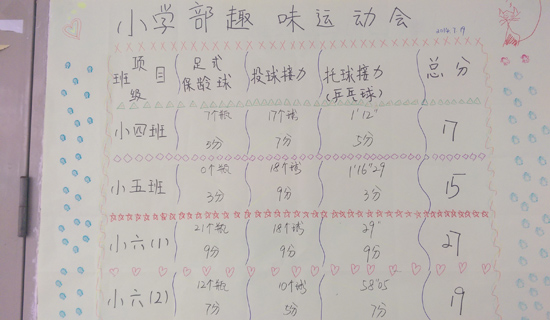 小学部趣味运动会
项目 足式 投球接力 托球接力 总分
班级 保龄球 (乒乓球)
7个瓶 17个球 1'12"
小四班 5分 7分 5分 17
0个瓶 18个球 1'16"29
小五班 3分 9分 3分 15
21个瓶 18个球 29"
小六(1) 9分 9分 9分 27
12个瓶 10个球 58"05
小六(2) 7分 5分 7分 19